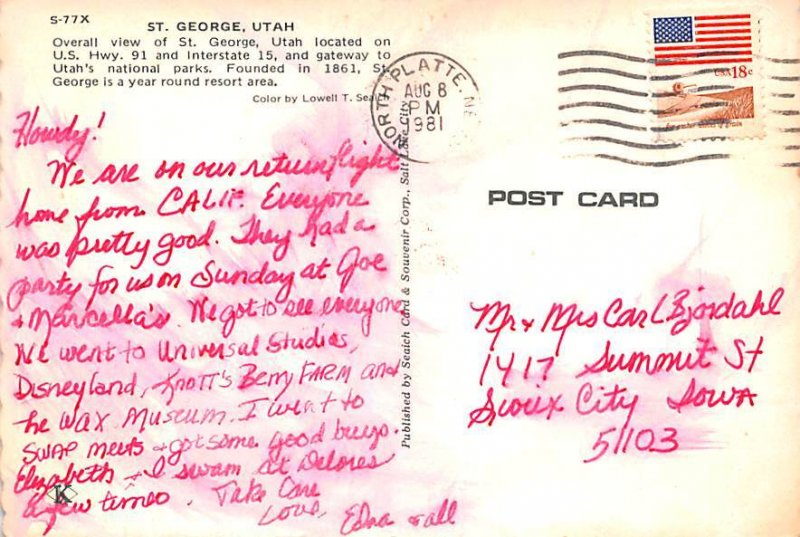 S-77X
ST. GEORGE, UTAH
Overall view of St. George, Utah located on
U.S. Hwy. 91 and Interstate 15, and gateway to
Utah's national parks. Founded in 1861, St.
George is a year round resort area.
Color by Lowell T. Seaich
Howdy!
We are on our return flight
home from CALIF. Everyone
was pretty good. They had a
party for us on Sunday at Joe
+ Marcella's. We got to see everyone
We went to Universal Studios,
Disneyland, Knott's Berry FARM and
the WAX MUSEUM. I went to
SWAP meets + got some good buys.
Elizabeth + I swam at Delores
a few times. Take Care
Love,
Edna + all
K
Published by Seaich Card & Souvenir Corp., Salt Lake City
NORTH PLATTE, NE
AUG 8
PM
1981
USA 18c
POST CARD
Mr + Mrs Carl Bjordahl
1417 Summit St
Sioux City Iowa
51103